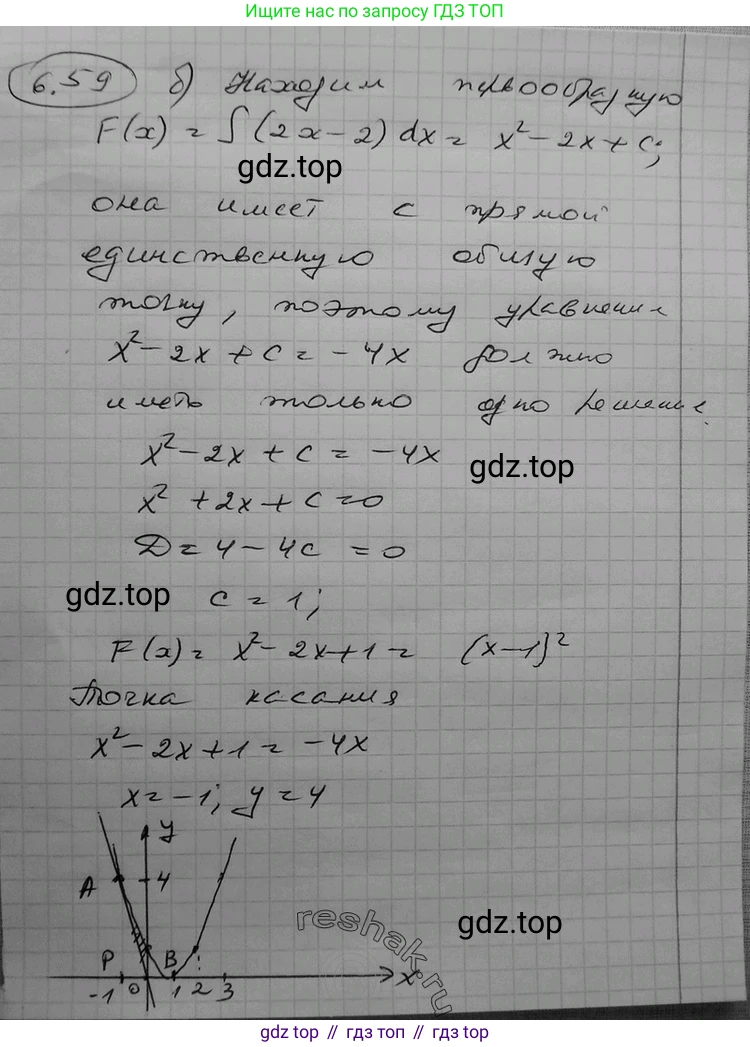 Ищите нас по запросу ГДЗ ТОП
6.59 б) Находим первообразную
F(x) = ∫(2x-2)dx = x²-2x+C;
gdz.top
она имеет с прямой
единственную общую
точку, поэтому уравнение
x²-2x+C = -4x должно
иметь только одно решение.
x²-2x+C = -4x
gdz.top
x²+2x+C=0
D=4-4C=0
gdz.top C=1;
F(x)= x²-2x+1= (x-1)²
Точка касания
x²-2x+1= -4x
x=-1; y=4
y
A 4
reshak.ru
gdz.top
P B
-1 0 1 2 3 x
gdz top // гдз топ // гдз top